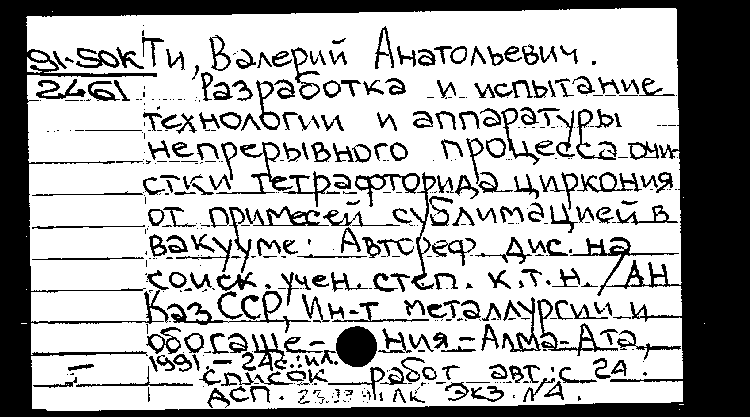 91-50К
2461
Ти, Валерий Анатольевич.
Разработка и испытание
технологии и аппаратуры
непрерывного процесса очи-
стки тетрафторида циркония
от примесей сублимацией в
вакууме: Автореф. дис. на
соиск. учен. степ. к.т.н. / АН
КазССР, Ин-т металлургии и
обогаще- ния. - Алма-Ата,
1991. - 24с.: ил.
Список работ авт.: с 24.
ДСП. ЛК Экз. №4.